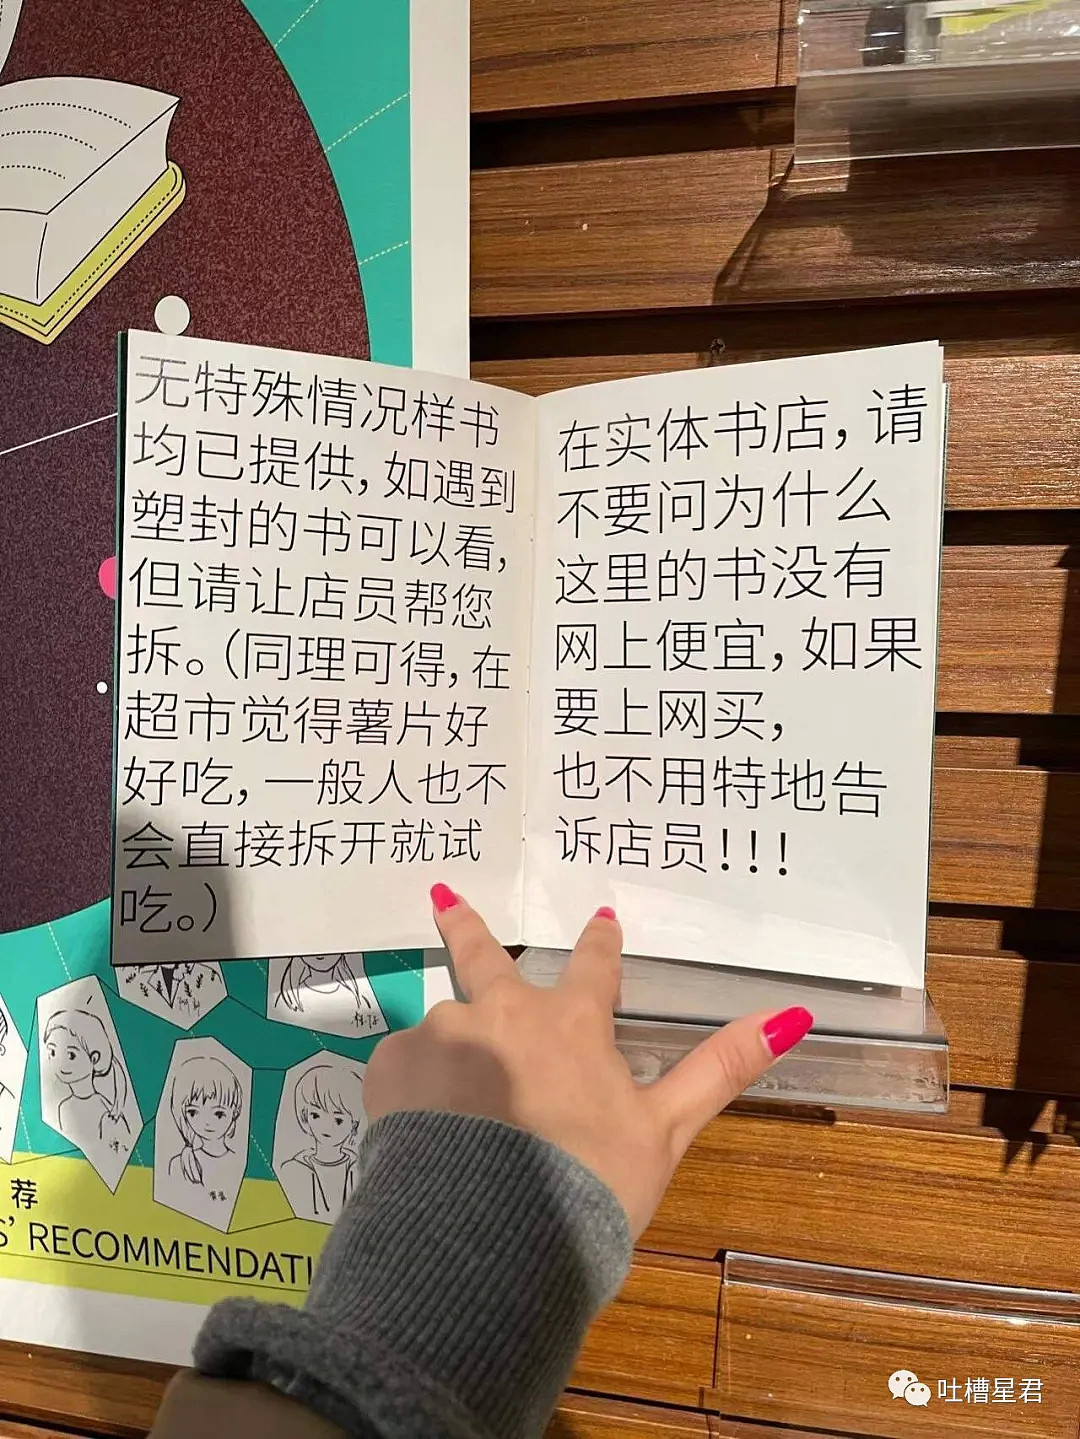 无特殊情况样书
均已提供,如遇到
塑封的书可以看,
但请让店员帮您
拆。(同理可得,在
超市觉得薯片好
好吃,一般人也不
会直接拆开就试
吃。)
在实体书店,请
不要问为什么
这里的书没有
网上便宜,如果
要上网买,
也不用特地告
诉店员!!!
荐
S' RECOMMENDATI
吐槽星君